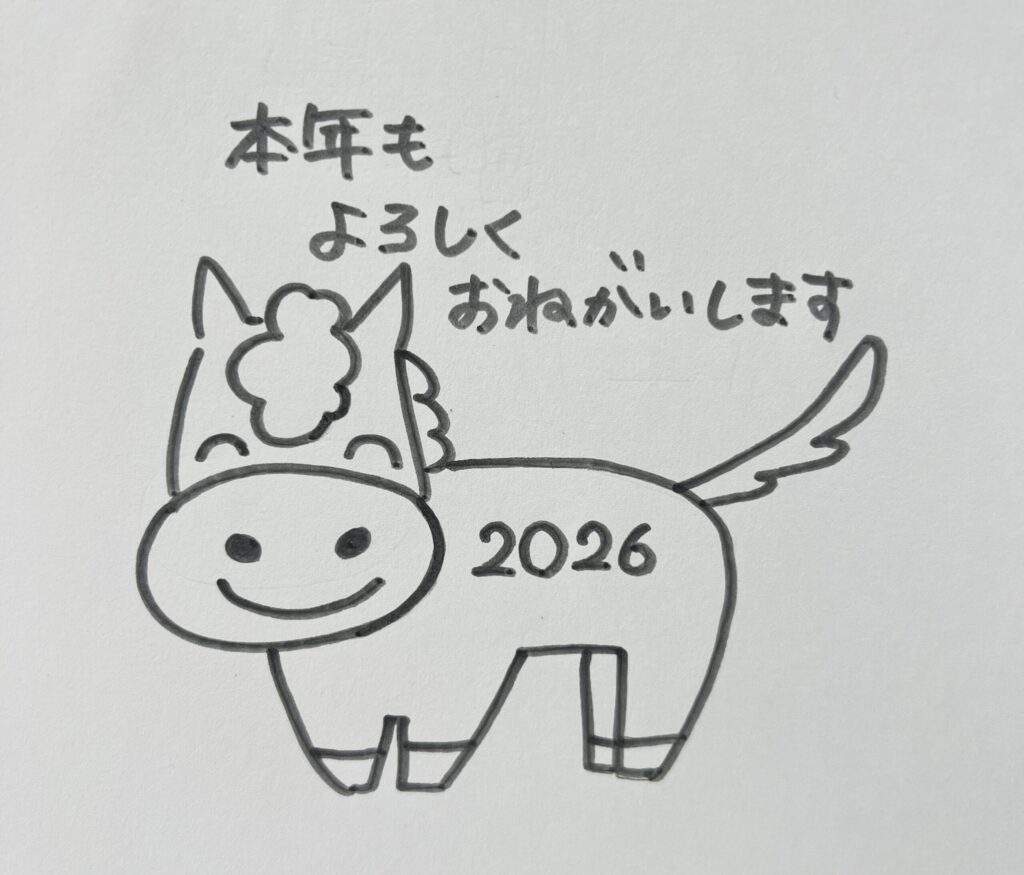 本年も
よろしく
おねがいします
2026